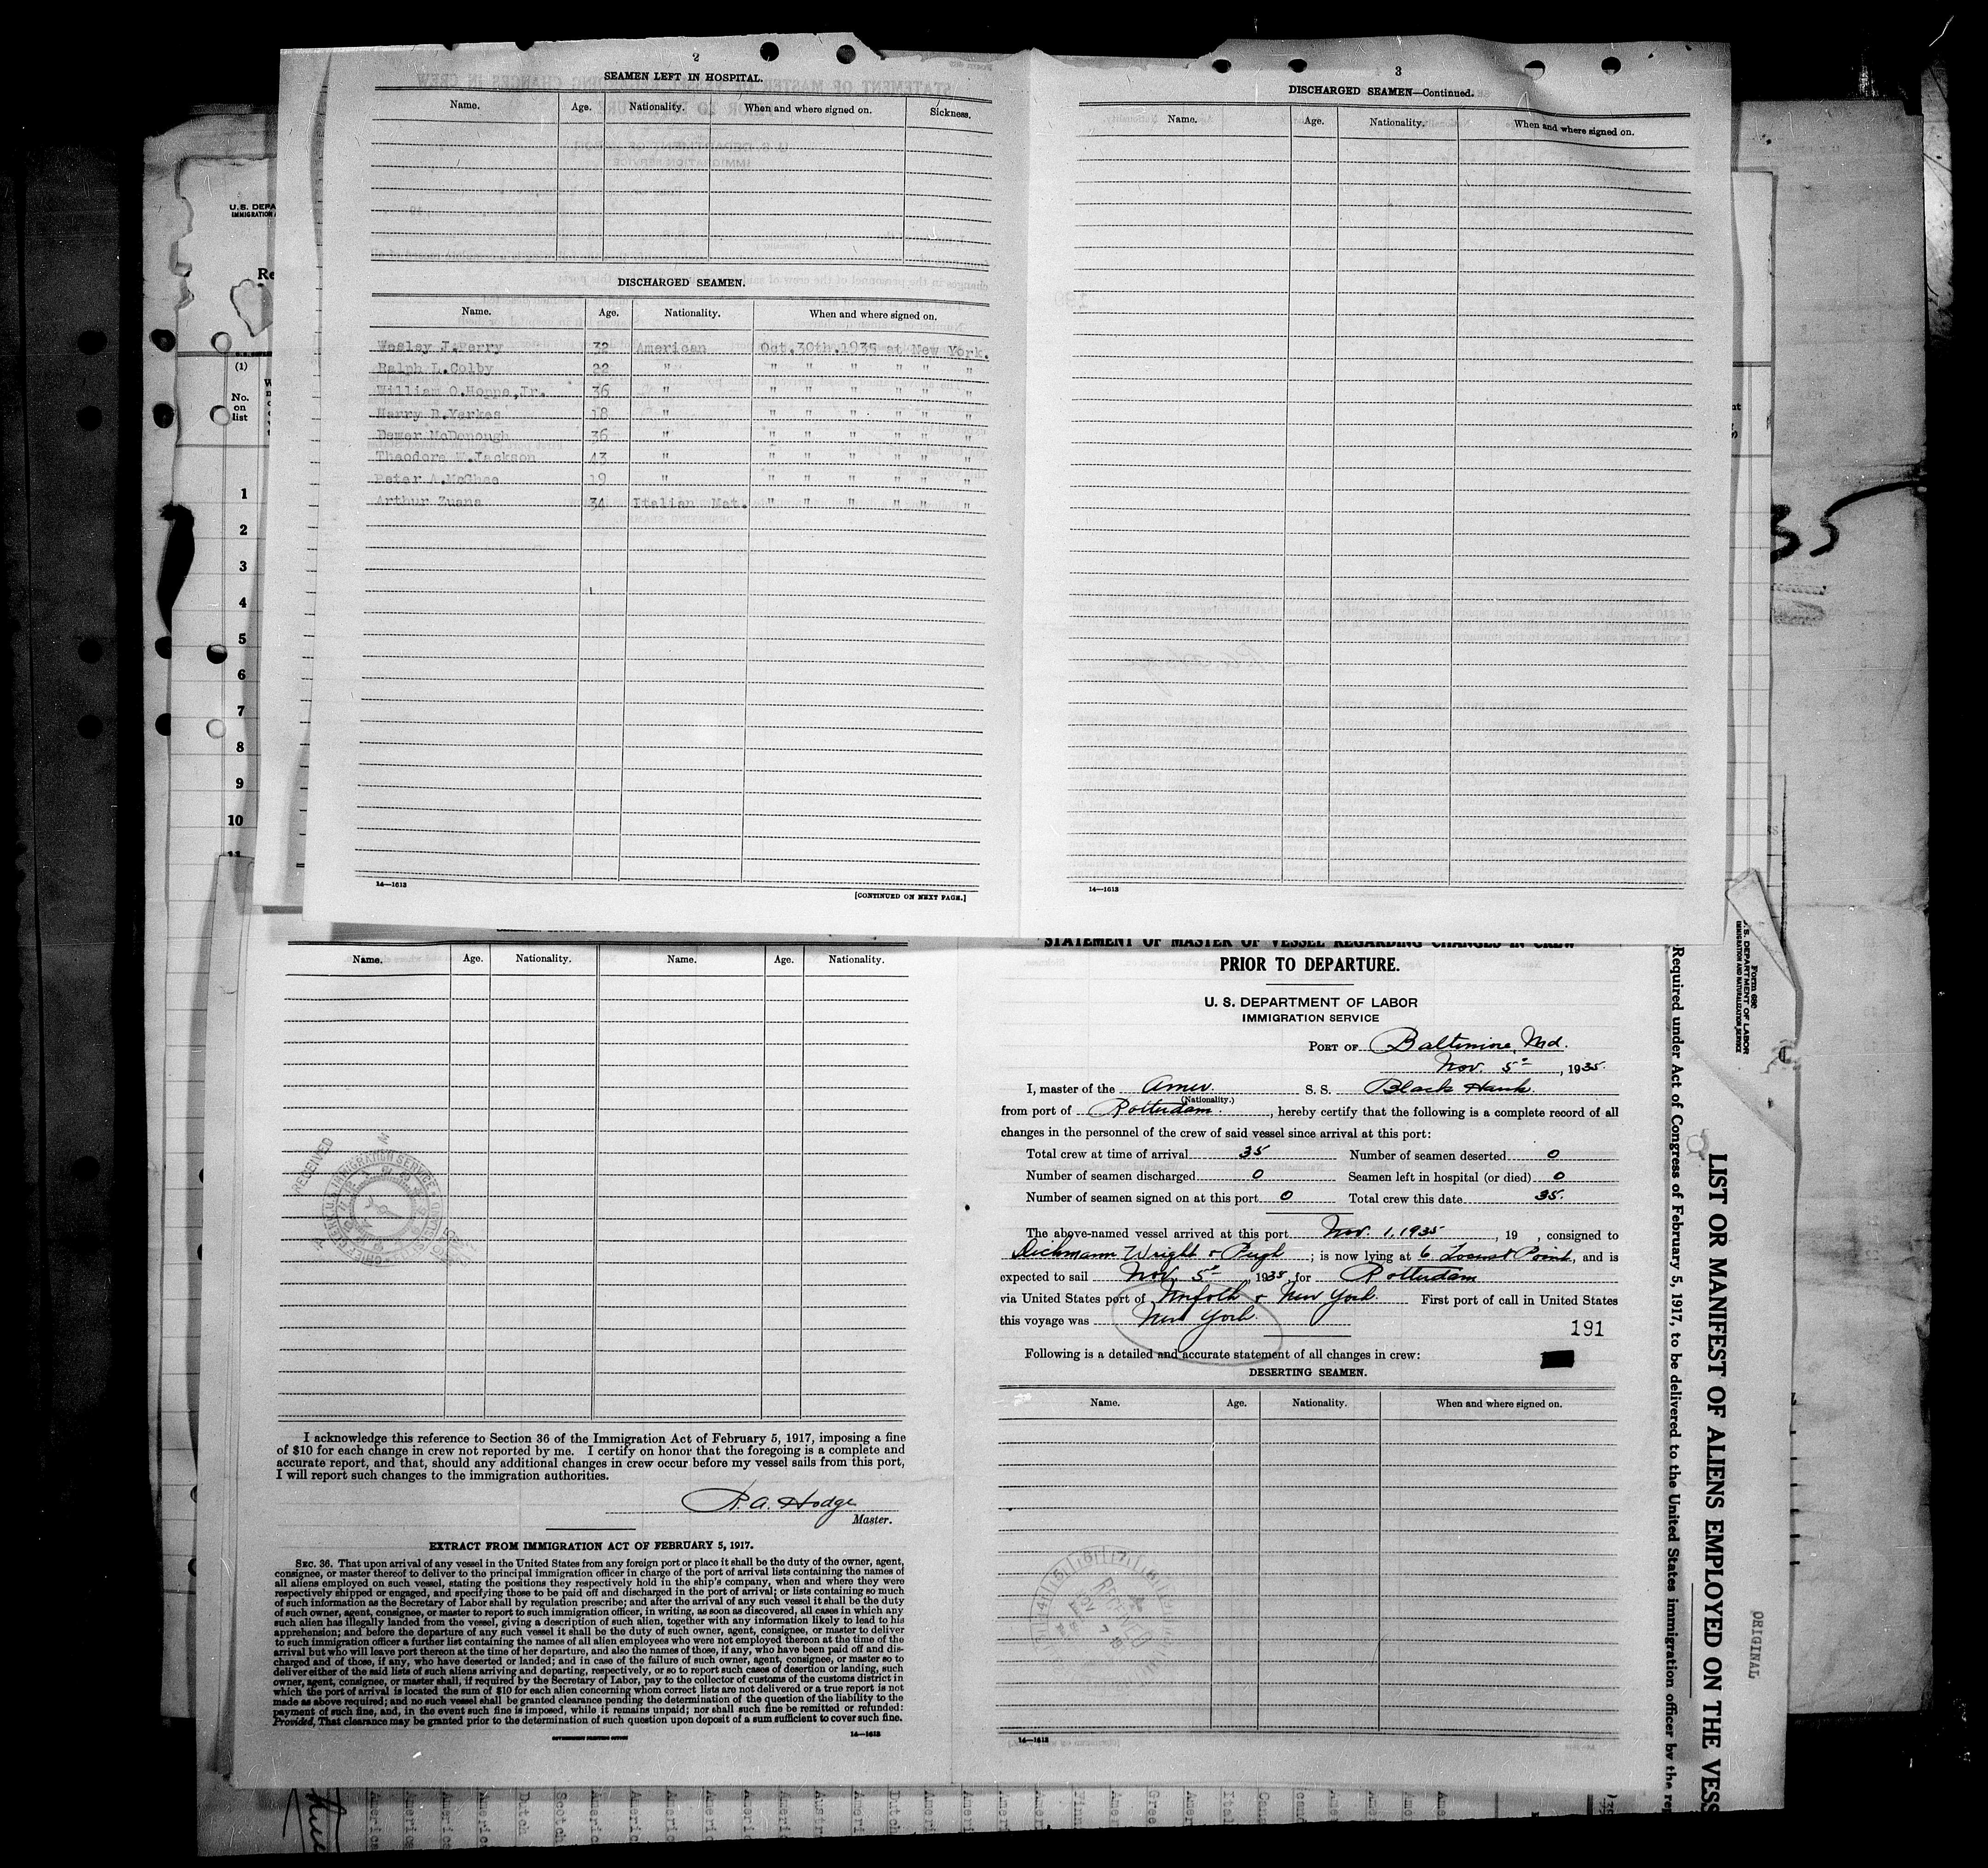 2
SEAMEN LEFT IN HOSPITAL.
Name. Age. Nationality. When and where signed on. Sickness.
DISCHARGED SEAMEN.
Name. Age. Nationality. When and where signed on.
Wesley J. Perry 32 American Oct. 30th. 1935 at New York.
Ralph L. Colby 22 " " " " " " "
William O. Hoppe, Jr. 36 " " " " " " "
Harry B. Yerkes 18 " " " " " " "
McDonough 36 " " " " " " "
Theodore W. Jackson 43 " " " " " " "
Peter A. McGhee 19 " " " " " " "
Arthur Zuans 34 Italian Nat. " " " " " "
14—1613
[CONTINUED ON NEXT PAGE.]
3
DISCHARGED SEAMEN—Continued.
Name. Age. Nationality. When and where signed on.
14—1613
U.S. DEPA
IMMIGRATION
Re
(1)
No.
on
list
1
2
3
4
5
6
7
8
9
10
11
35
Name. Age. Nationality. Name. Age. Nationality.
RECEIVED
I acknowledge this reference to Section 36 of the Immigration Act of February 5, 1917, imposing a fine
of $10 for each change in crew not reported by me. I certify on honor that the foregoing is a complete and
accurate report, and that, should any additional changes in crew occur before my vessel sails from this port,
I will report such changes to the immigration authorities.
R. A. Hodge
Master.
EXTRACT FROM IMMIGRATION ACT OF FEBRUARY 5, 1917.
SEC. 36. That upon arrival of any vessel in the United States from any foreign port or place it shall be the duty of the owner, agent,
consignee, or master thereof to deliver to the principal immigration officer in charge of the port of arrival lists containing the names of
all aliens employed on such vessel, stating the positions they respectively hold in the ship's company, when and where they were
respectively shipped or engaged, and specifying those to be paid off and discharged in the port of arrival; or lists containing so much
of such information as the Secretary of Labor shall by regulation prescribe; and after the arrival of any such vessel it shall be the duty
of such owner, agent, consignee, or master to report to such immigration officer, in writing, as soon as discovered, all cases in which any
such alien has illegally landed from the vessel, giving a description of such alien, together with any information likely to lead to his
apprehension; and before the departure of any such vessel it shall be the duty of such owner, agent, consignee, or master to deliver
to such immigration officer a further list containing the names of all alien employees who were not employed thereon at the time of the
arrival but who will leave port thereon at the time of her departure, and also the names of those, if any, who have been paid off and dis-
charged and of those, if any, who have deserted or landed; and in case of the failure of such owner, agent, consignee, or master so to
deliver either of the said lists of such aliens arriving and departing, respectively, or so to report such cases of desertion or landing, such
owner, agent, consignee, or master shall, if required by the Secretary of Labor, pay to the collector of customs of the customs district in
which the port of arrival is located the sum of $10 for each alien concerning whom correct lists are not delivered or a true report is not
made as above required; and no such vessel shall be granted clearance pending the determination of the question of the liability to the
payment of such fine, and, in the event such fine is imposed, while it remains unpaid; nor shall such fine be remitted or refunded:
Provided, That clearance may be granted prior to the determination of such question upon deposit of a sum sufficient to cover such fine.
GOVERNMENT PRINTING OFFICE
14—1613
STATEMENT OF MASTER OF VESSEL REGARDING CHANGES IN CREW
PRIOR TO DEPARTURE.
U. S. DEPARTMENT OF LABOR
IMMIGRATION SERVICE
PORT OF Baltimore, Md.
Nov. 5th, 1935.
I, master of the Amer. S. S. Black Hawk
(Nationality.)
from port of Rotterdam, hereby certify that the following is a complete record of all
changes in the personnel of the crew of said vessel since arrival at this port:
Total crew at time of arrival 35 Number of seamen deserted 0
Number of seamen discharged 0 Seamen left in hospital (or died) 0
Number of seamen signed on at this port 0 Total crew this date 35.
The above-named vessel arrived at this port Nov. 1, 1935, 19 , consigned to
Dichmann Wright & Pugh; is now lying at 6 Locust Point, and is
expected to sail Nov. 5th, 1935, for Rotterdam
via United States port of Norfolk & New York. First port of call in United States
this voyage was New York.
191
Following is a detailed and accurate statement of all changes in crew:
DESERTING SEAMEN.
Name. Age. Nationality. When and where signed on.
RECEIVED
14—1613
Form 680
U.S. DEPARTMENT OF LABOR
IMMIGRATION AND NATURALIZATION SERVICE
LIST OR MANIFEST OF ALIENS EMPLOYED ON THE VESS
Required under Act of Congress of February 5, 1917, to be delivered to the United States immigration officer by the rep
ORIGINAL
America
America
America
America
Dutch
Scotch
America
America
America
America
America
America
Austr
Ameri
Dutch
Amer
Ameri
Ameri
Amer
Finn
Amer
Gree
Amer
Ital
Cana
Amer
Amer
Ame